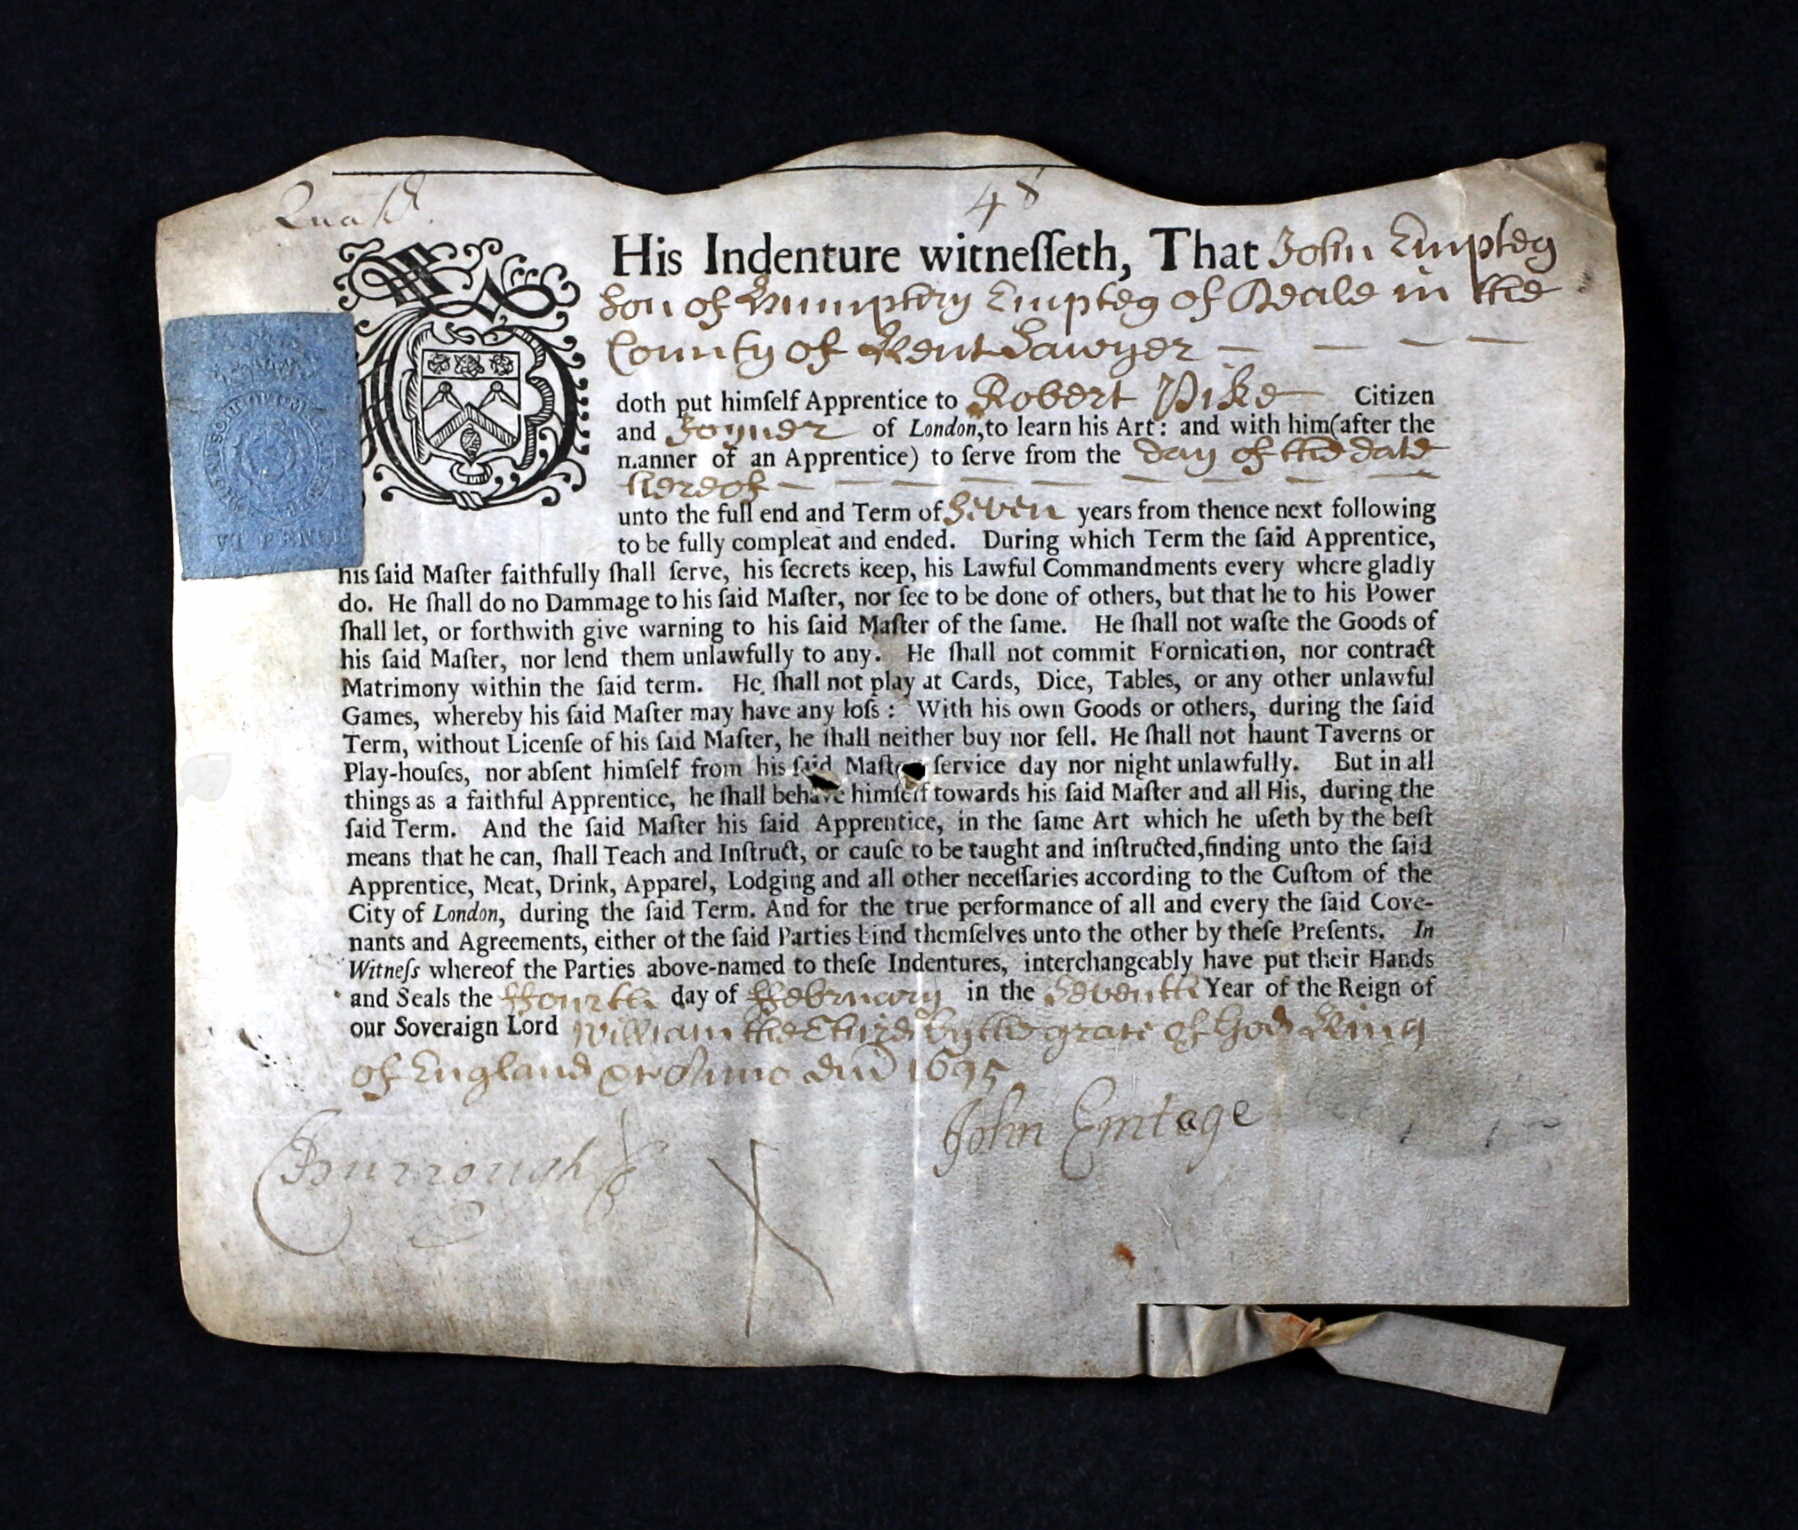 48
THis Indenture witneſſeth, That John Empteg
Son of Empteg of Deale in the
County of Kent Sawyer
doth put himſelf Apprentice to Robert Pike Citizen
and Joyner of London, to learn his Art: and with him (after the
manner of an Apprentice) to ſerve from the day of the date
hereof
unto the full end and Term of Seven years from thence next following
to be fully compleat and ended. During which Term the ſaid Apprentice,
his ſaid Maſter faithfully ſhall ſerve, his ſecrets keep, his Lawful Commandments every where gladly
do. He ſhall do no Dammage to his ſaid Maſter, nor ſee to be done of others, but that he to his Power
ſhall let, or forthwith give warning to his ſaid Maſter of the ſame. He ſhall not waſte the Goods of
his ſaid Maſter, nor lend them unlawfully to any. He ſhall not commit Fornication, nor contract
Matrimony within the ſaid term. He ſhall not play at Cards, Dice, Tables, or any other unlawful
Games, whereby his ſaid Maſter may have any loſs: With his own Goods or others, during the ſaid
Term, without Licenſe of his ſaid Maſter, he ſhall neither buy nor ſell. He ſhall not haunt Taverns or
Play-houſes, nor abſent himſelf from his ſaid Maſters ſervice day nor night unlawfully. But in all
things as a faithful Apprentice, he ſhall behave himſelf towards his ſaid Maſter and all His, during the
ſaid Term. And the ſaid Maſter his ſaid Apprentice, in the ſame Art which he uſeth by the beſt
means that he can, ſhall Teach and Inſtruct, or cauſe to be taught and inſtructed, finding unto the ſaid
Apprentice, Meat, Drink, Apparel, Lodging and all other neceſſaries according to the Cuſtom of the
City of London, during the ſaid Term. And for the true performance of all and every the ſaid Cove-
nants and Agreements, either of the ſaid Parties bind themſelves unto the other by theſe Preſents. In
Witneſs whereof the Parties above-named to theſe Indentures, interchangeably have put their Hands
and Seals the ffourth day of ffebruary in the Seventh Year of the Reign of
our Soveraign Lord William the Third by the grace of God King
of England &c Annoq dni 1695
John Emtage
Burrough
VI PENCE